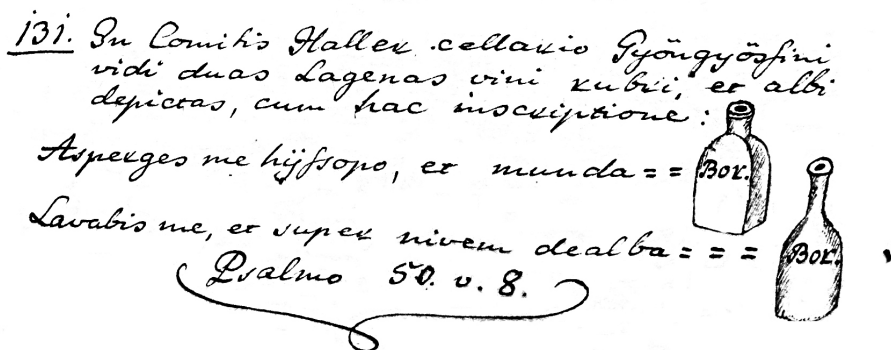 131. In Comitis Haller cellario Gyöngyösini
vidi duas Lagenas vini rubri, et albi
depictas, cum hac inscriptione:
Asperges me hÿssopo, et munda== Bor.
Lavabis me, et super nivem dealba=== Bor.
Psalmo 50. v. 8.